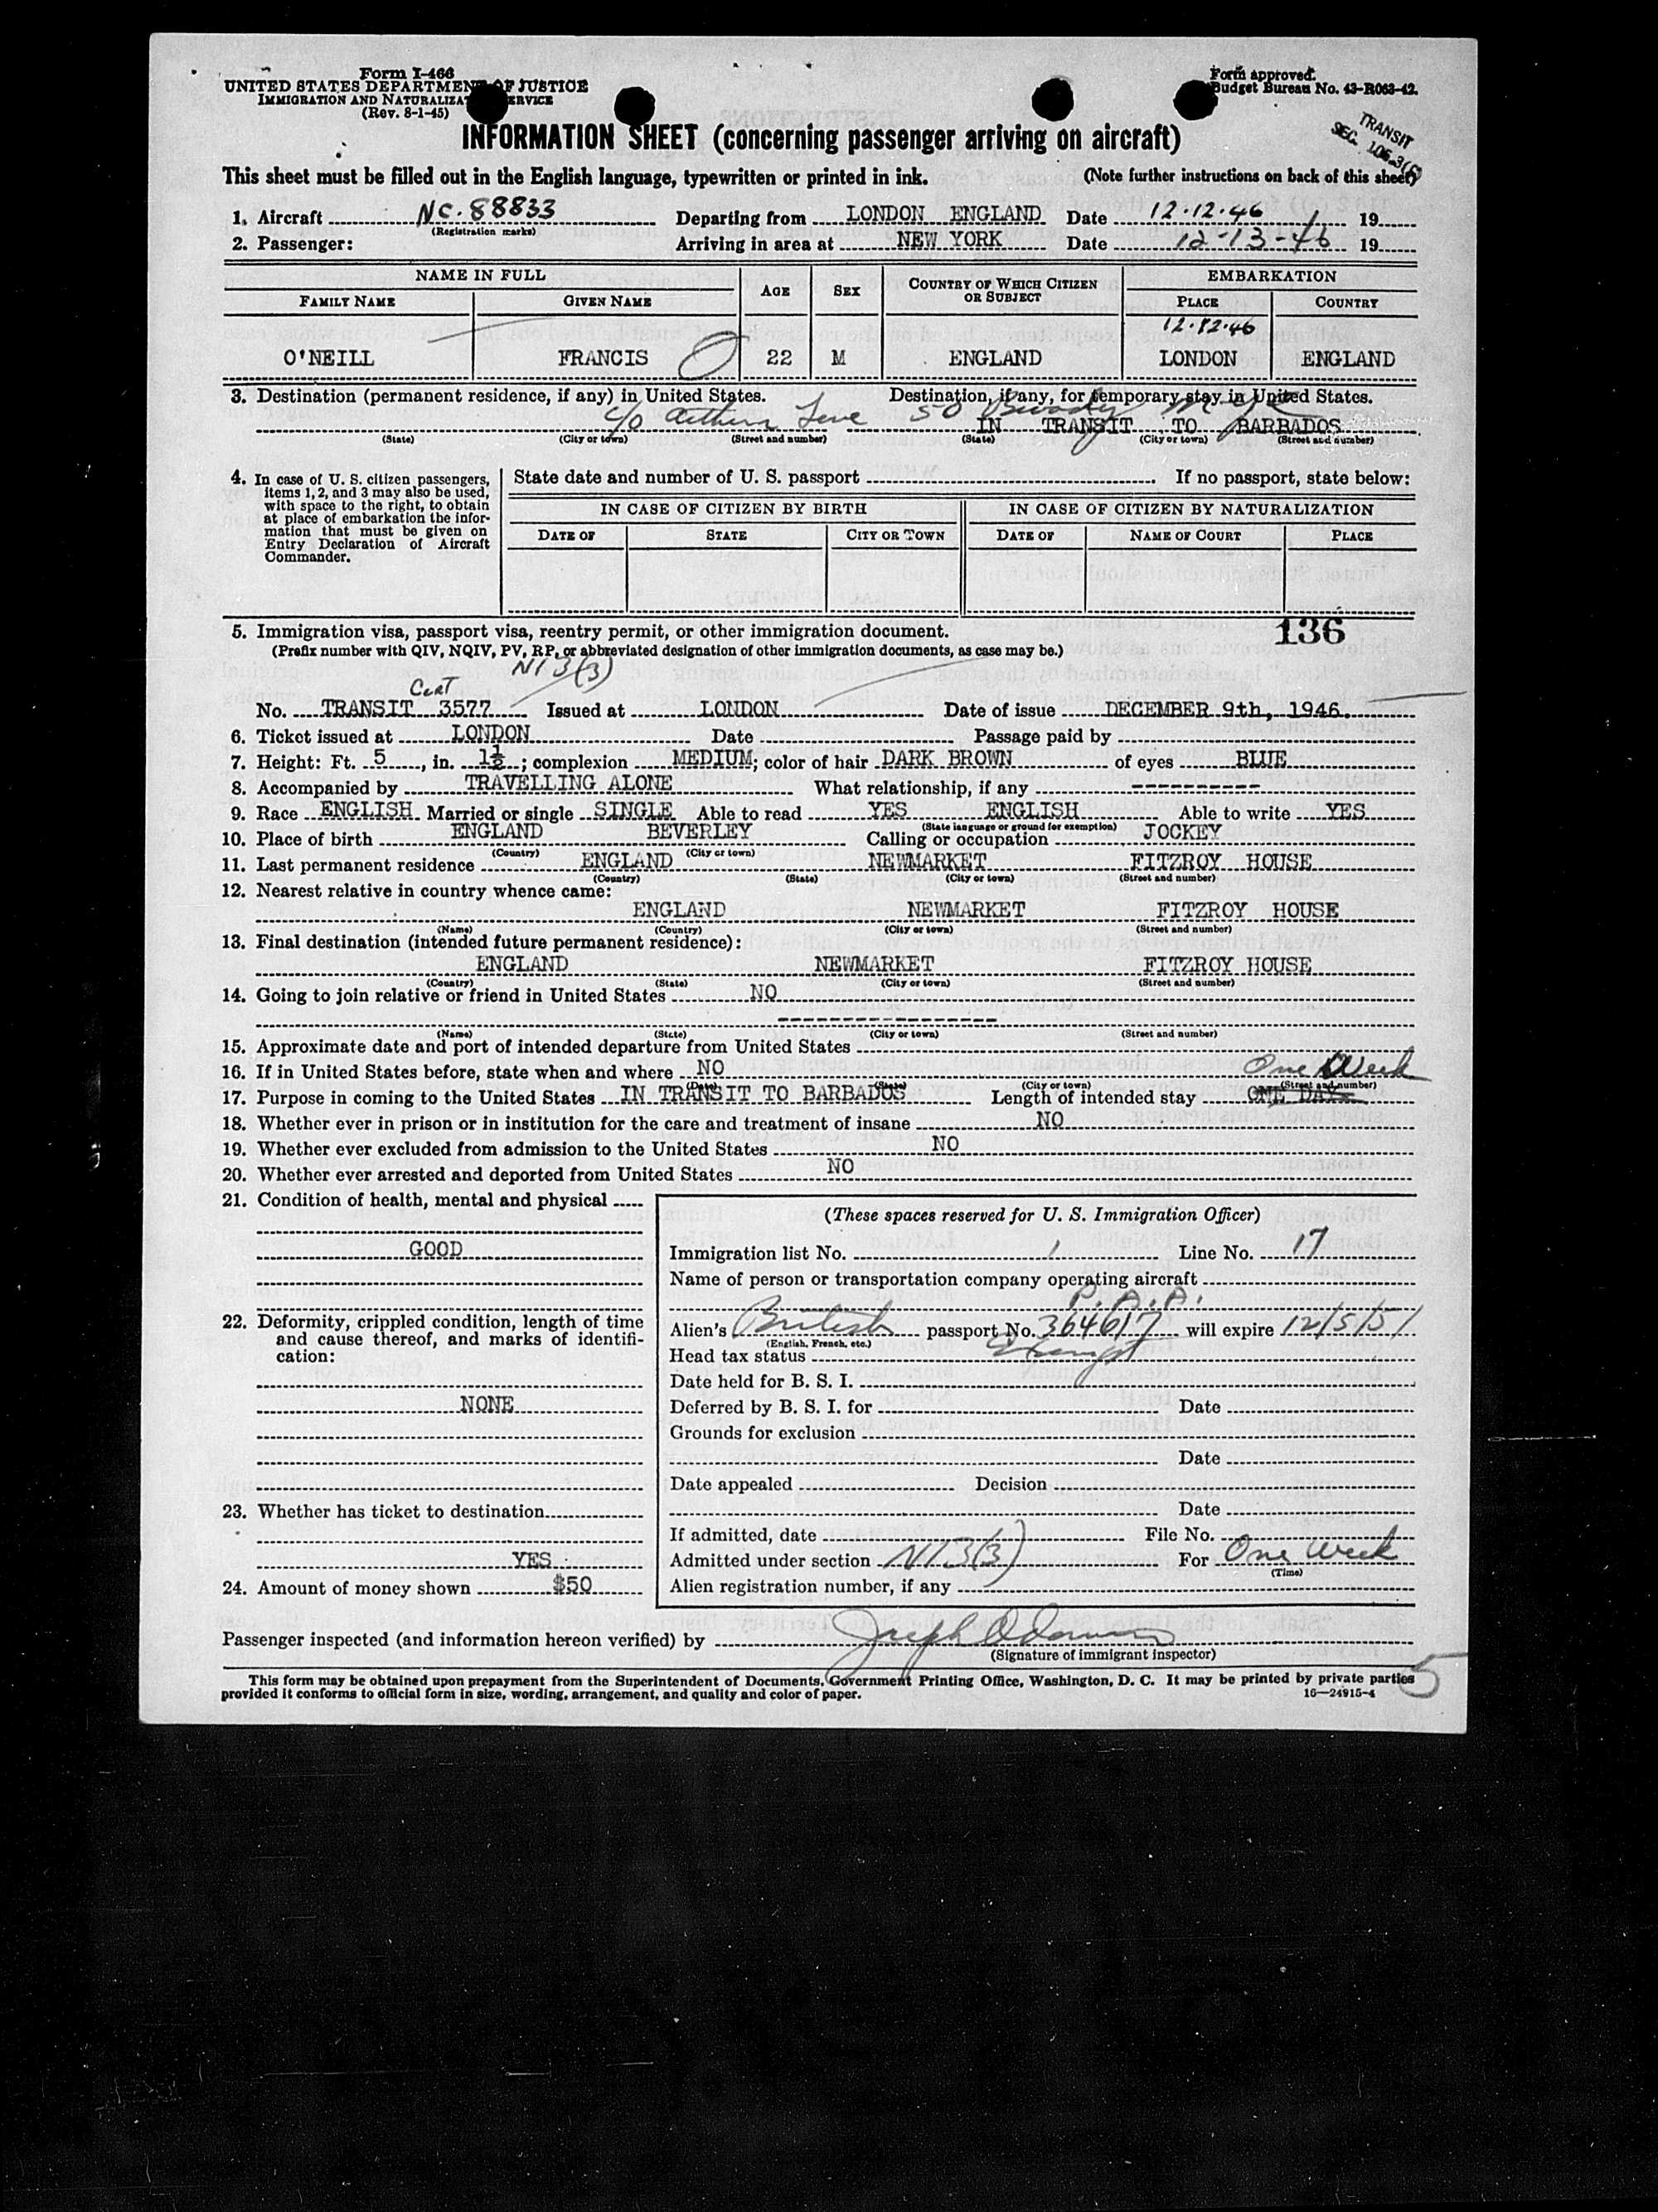 Form I-466
UNITED STATES DEPARTMENT OF JUSTICE
IMMIGRATION AND NATURALIZATION SERVICE
(Rev. 8-1-45)
Form approved.
Budget Bureau No. 43-R063-42.
INFORMATION SHEET (concerning passenger arriving on aircraft)
TRANSIT
SEC. 105.3
This sheet must be filled out in the English language, typewritten or printed in ink. (Note further instructions on back of this sheet)
1. Aircraft NC.88833 Departing from LONDON ENGLAND Date 12.12.46 19
(Registration marks)
2. Passenger: Arriving in area at NEW YORK Date 12-13-46 19
NAME IN FULL AGE SEX COUNTRY OF WHICH CITIZEN OR SUBJECT EMBARKATION
FAMILY NAME GIVEN NAME PLACE COUNTRY
12.12.46
O'NEILL FRANCIS 22 M ENGLAND LONDON ENGLAND
3. Destination (permanent residence, if any) in United States. Destination, if any, for temporary stay in United States.
c/o 50
IN TRANSIT TO BARBADOS
(State) (City or town) (Street and number) (State) (City or town) (Street and number)
4. In case of U. S. citizen passengers, items 1, 2, and 3 may also be used, with space to the right, to obtain at place of embarkation the information that must be given on Entry Declaration of Aircraft Commander.
State date and number of U. S. passport If no passport, state below:
IN CASE OF CITIZEN BY BIRTH IN CASE OF CITIZEN BY NATURALIZATION
DATE OF STATE CITY OR TOWN DATE OF NAME OF COURT PLACE
136
5. Immigration visa, passport visa, reentry permit, or other immigration document.
(Prefix number with QIV, NQIV, PV, RP, or abbreviated designation of other immigration documents, as case may be.)
N13(3)
Cert
No. TRANSIT 3577 Issued at LONDON Date of issue DECEMBER 9th, 1946.
6. Ticket issued at LONDON Date Passage paid by
7. Height: Ft. 5, in. 1½; complexion MEDIUM; color of hair DARK BROWN of eyes BLUE
8. Accompanied by TRAVELLING ALONE What relationship, if any ----------
9. Race ENGLISH Married or single SINGLE Able to read YES ENGLISH Able to write YES
(State language or ground for exemption)
10. Place of birth ENGLAND BEVERLEY Calling or occupation JOCKEY
(Country) (City or town)
11. Last permanent residence ENGLAND NEWMARKET FITZROY HOUSE
(Country) (State) (City or town) (Street and number)
12. Nearest relative in country whence came:
ENGLAND NEWMARKET FITZROY HOUSE
(Name) (Country) (City or town) (Street and number)
13. Final destination (intended future permanent residence):
ENGLAND NEWMARKET FITZROY HOUSE
(Country) (State) (City or town) (Street and number)
14. Going to join relative or friend in United States NO
-----------------
(Name) (State) (City or town) (Street and number)
15. Approximate date and port of intended departure from United States
16. If in United States before, state when and where NO One Week
(Date) (State) (City or town) (Street and number)
17. Purpose in coming to the United States IN TRANSIT TO BARBADOS Length of intended stay ONE DAY
18. Whether ever in prison or in institution for the care and treatment of insane NO
19. Whether ever excluded from admission to the United States NO
20. Whether ever arrested and deported from United States NO
21. Condition of health, mental and physical
GOOD
22. Deformity, crippled condition, length of time and cause thereof, and marks of identification:
NONE
23. Whether has ticket to destination
YES
24. Amount of money shown $50
(These spaces reserved for U. S. Immigration Officer)
Immigration list No. 1 Line No. 17
Name of person or transportation company operating aircraft
P.A.A.
Alien's British passport No. 364617 will expire 12/5/51
(English, French, etc.)
Head tax status Exempt
Date held for B. S. I.
Deferred by B. S. I. for Date
Grounds for exclusion
Date
Date appealed Decision
Date
If admitted, date File No.
Admitted under section N13(3) For One Week
(Time)
Alien registration number, if any
Passenger inspected (and information hereon verified) by Joseph
(Signature of immigrant inspector)
This form may be obtained upon prepayment from the Superintendent of Documents, Government Printing Office, Washington, D. C. It may be printed by private parties
provided it conforms to official form in size, wording, arrangement, and quality and color of paper. 16—24915-4
5